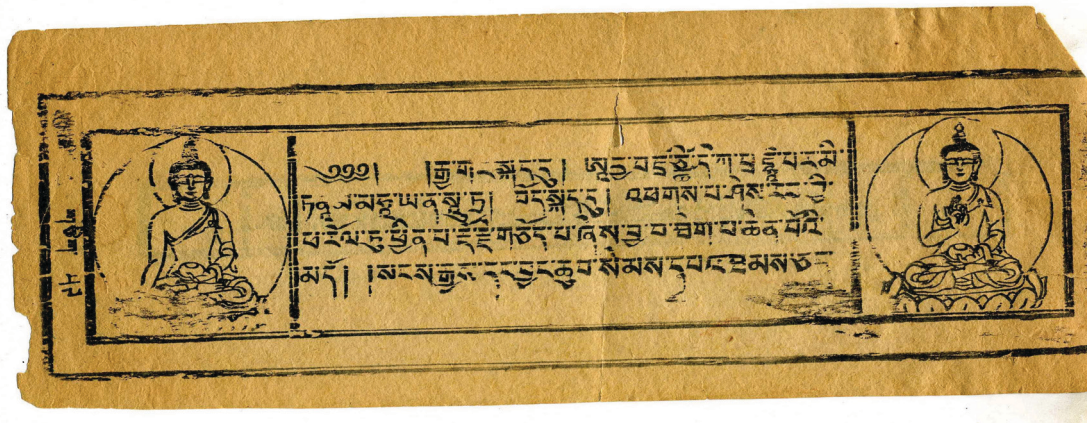 ༄༅༅། །རྒྱ་གར་སྐད་དུ། ཨཱརྱ་བཛྲ་ཙྪེ་དི་ཀཱ་པྲཛྙཱ་པ་ར་མི་
ཏ་ནཱ་མ་མ་ཧཱ་ཡ་ན་སཱུ་ཏྲ། བོད་སྐད་དུ། འཕགས་པ་ཤེས་རབ་ཀྱི་
ཕ་རོལ་ཏུ་ཕྱིན་པ་རྡོ་རྗེ་གཅོད་པ་ཞེས་བྱ་བ་ཐེག་པ་ཆེན་པོའི་
མདོ། །སངས་རྒྱས་དང་བྱང་ཆུབ་སེམས་དཔའ་ཐམས་ཅད་